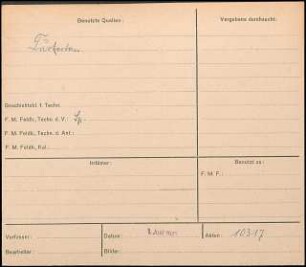 Benutzte Quellen:
Vergebens durchsucht:
Geschichtsbl. f. Techn.
F. M. Feldh., Techn. d. V.:
F. M. Feldh., Techn. d. Ant.:
F. M. Feldh., Kul.:
Irrtümer:
Benutzt zu:
F. M. F.:
Verfasser:
Datum:
Akten: 10317
Bearbeiter:
Bilder: